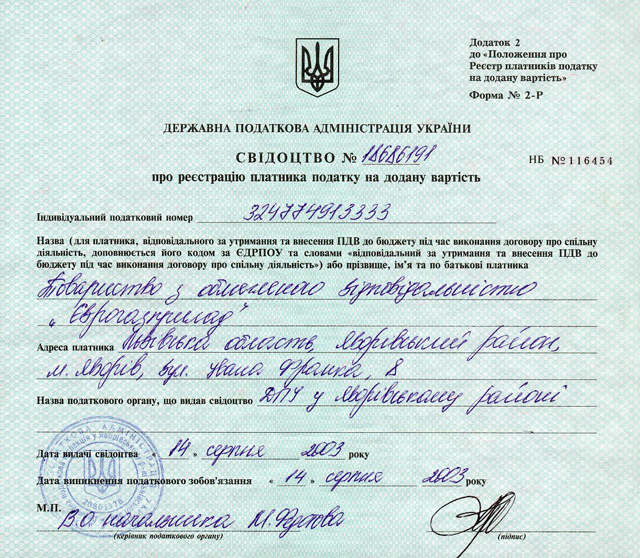 Додаток 2
до «Положення про
Реєстр платників податку
на додану вартість»
Форма № 2-Р
ДЕРЖАВНА ПОДАТКОВА АДМІНІСТРАЦІЯ УКРАЇНИ
СВІДОЦТВО № 18686191
НБ №116454
про реєстрацію платника податку на додану вартість
Індивідуальний податковий номер 324774913333
Назва (для платника, відповідального за утримання та внесення ПДВ до бюджету під час виконання договору про спільну
діяльність, доповнюється його кодом за ЄДРПОУ та словами «відповідальний за утримання та внесення ПДВ до
бюджету під час виконання договору про спільну діяльність») або прізвище, ім’я та по батькові платника
Товариство з обмеженою відповідальністю
„Єврогазприлад"
Адреса платника Львівська область, Яворівський район,
м. Яворів, вул. Івана Франка, 8
Назва податкового органу, що видав свідоцтво ДПІ у Яворівському районі
Дата видачі свідоцтва « 14 » серпня 2003 року
Дата виникнення податкового зобов'язання « 14 » серпня 2003 року
М.П. В.О. начальника М.
(керівник податкового органу)
(підпис)